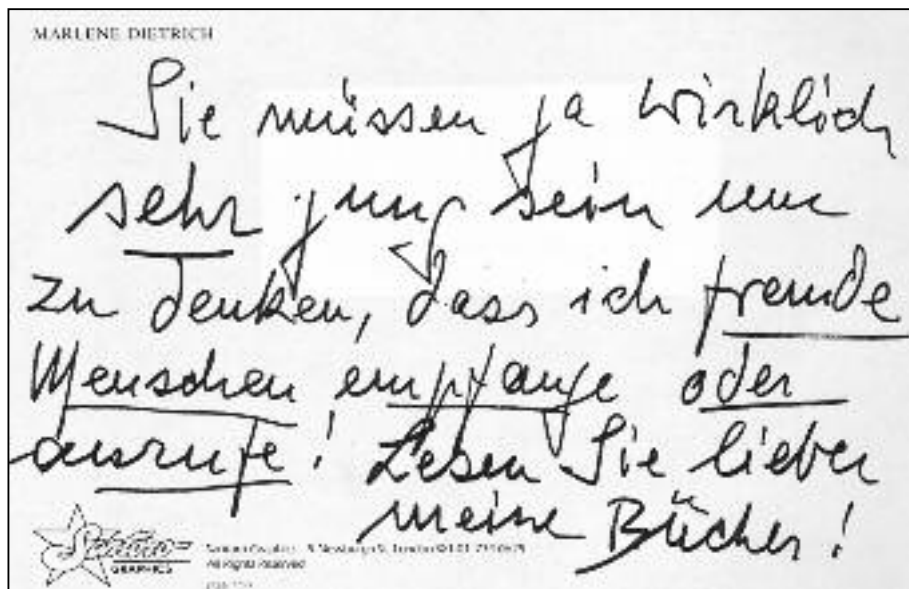 MARLENE DIETRICH
Sie müssen ja wirklich
sehr jung sein um
zu denken, dass ich fremde
Menschen empfange oder
anrufe! Lesen Sie lieber
meine Bücher!
GRAPHICS
Graphics London
All Rights Reserved